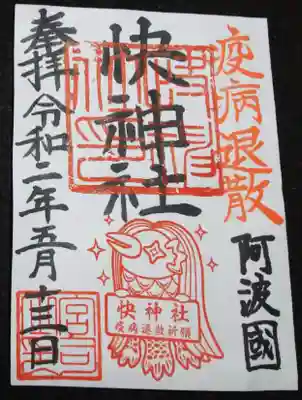 疫病退散
阿波國
快神社
快神社
疫病退散祈願
奉拝
令和二年五月十三日